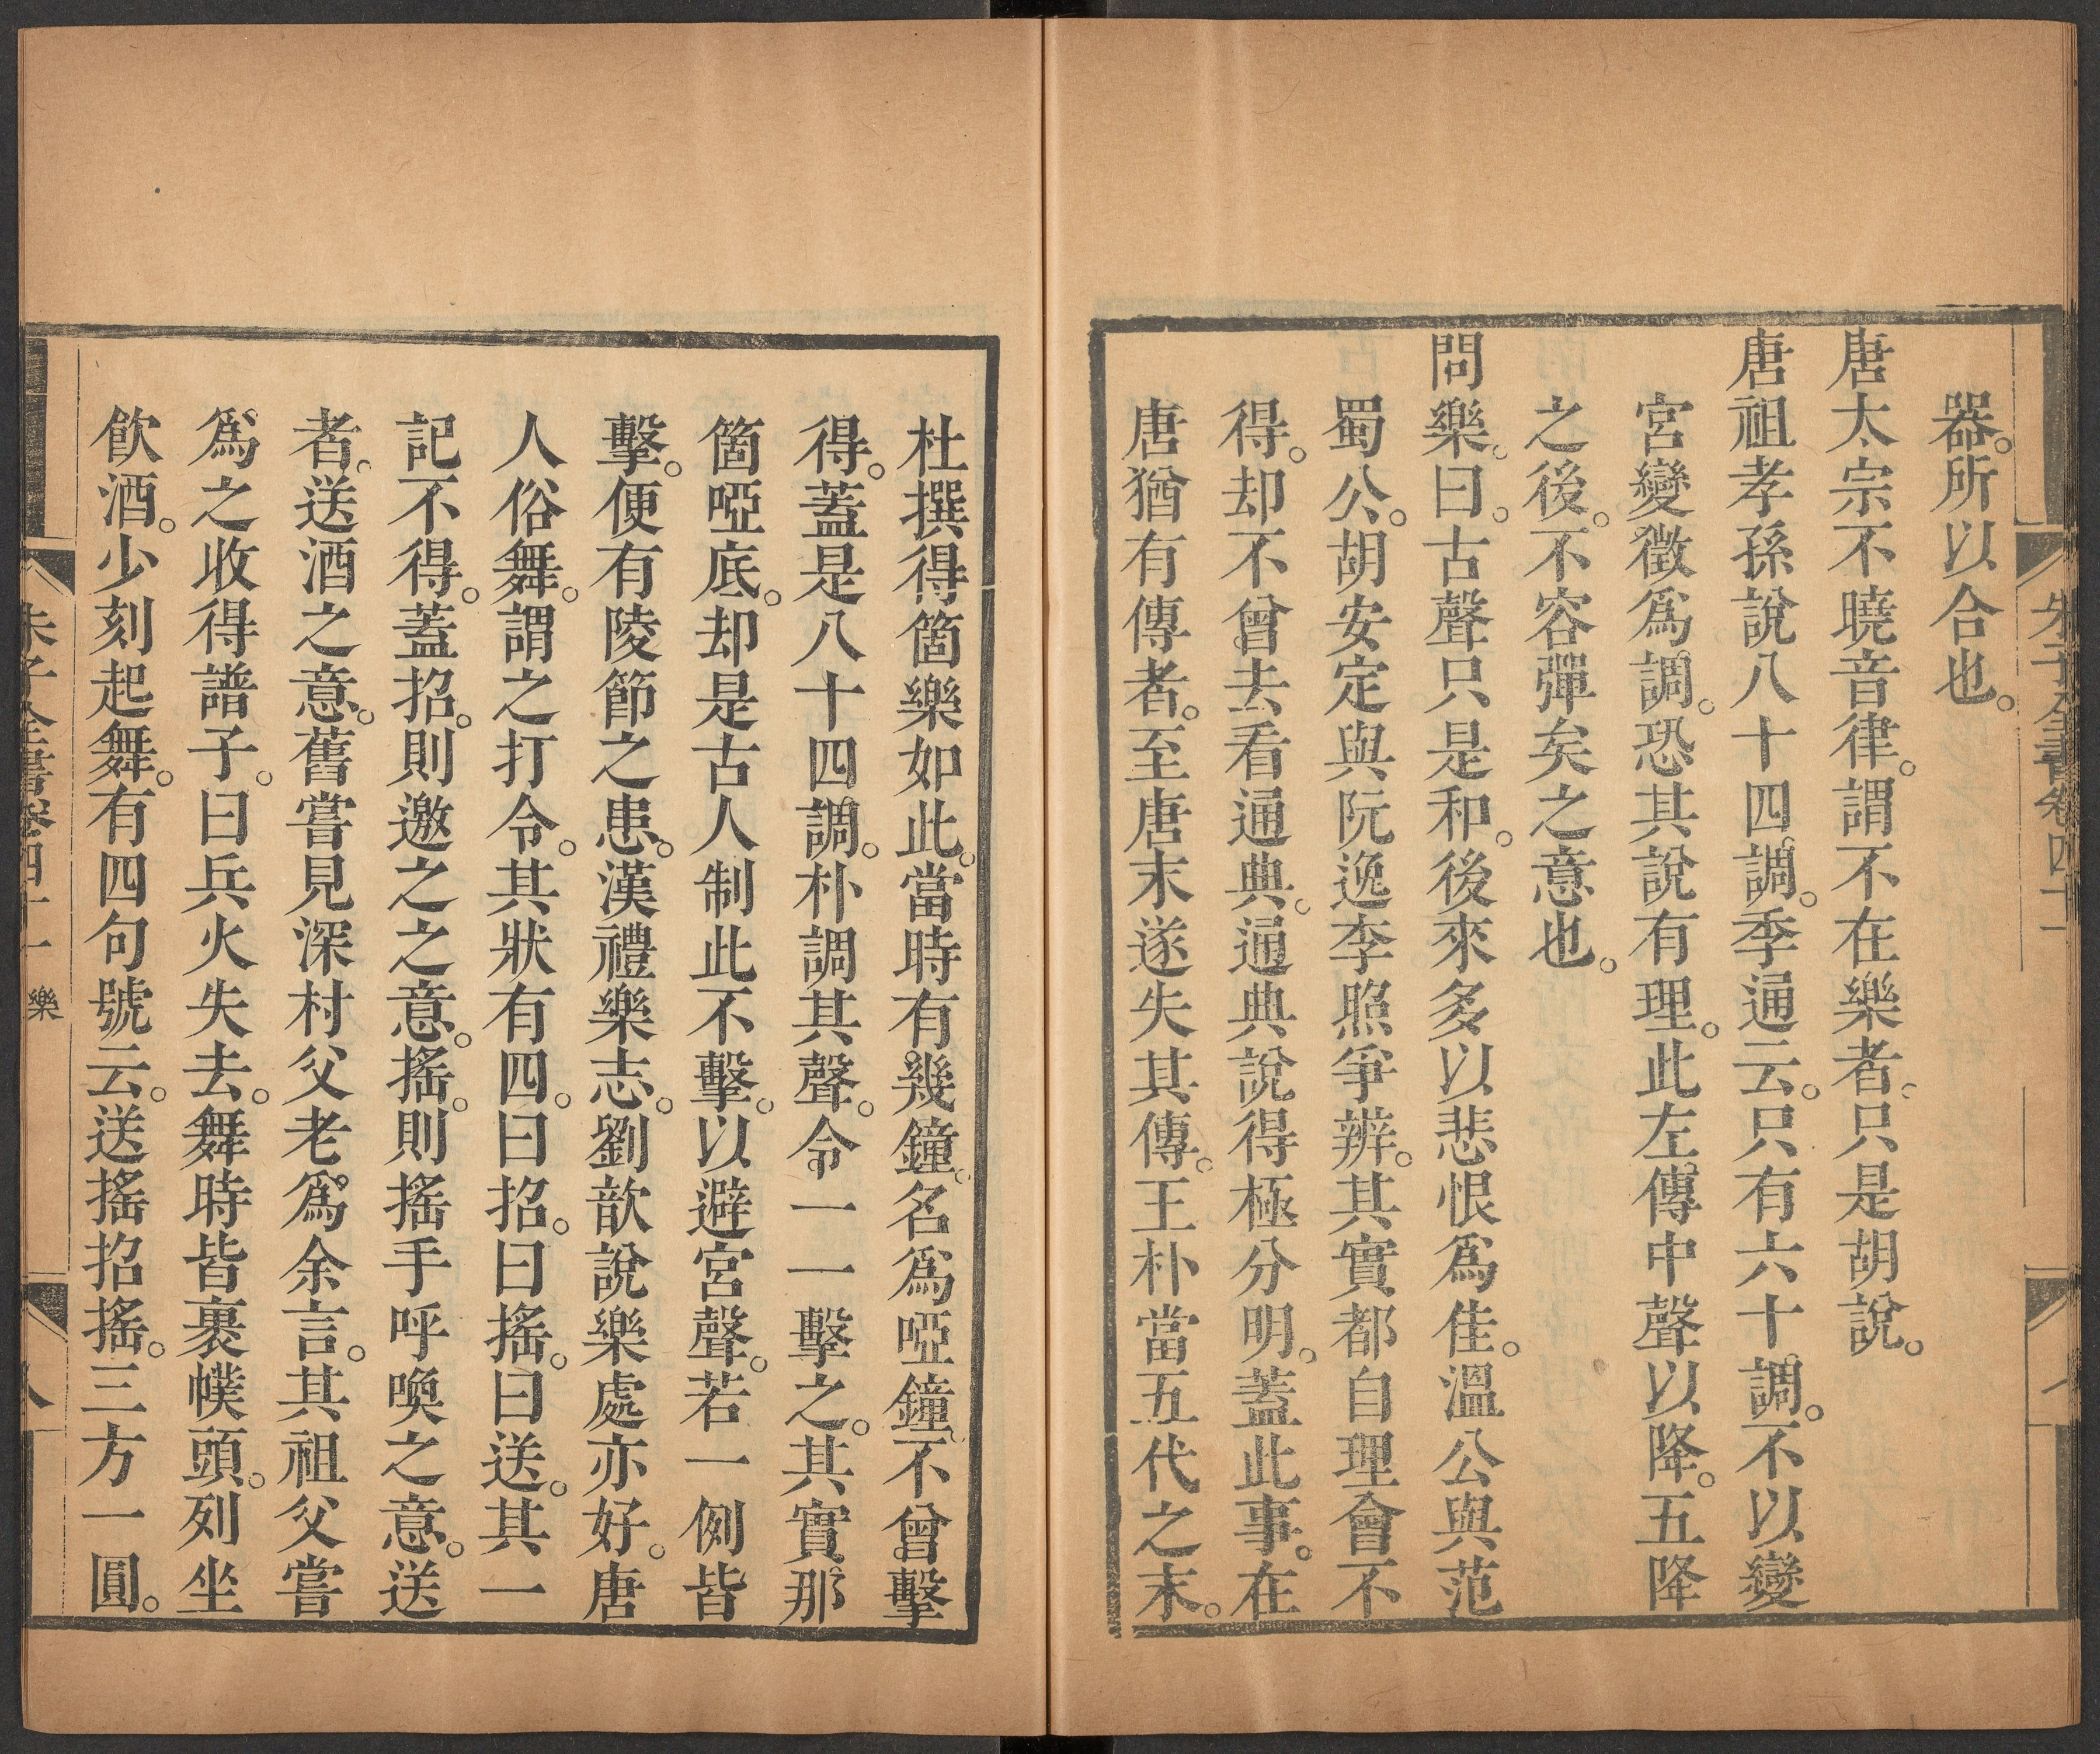 朱子全書卷四十一
器。所以合也。
唐太宗不曉音律。謂不在樂者。只是胡說。
唐祖孝孫說八十四調。季通云。只有六十調。不以變
宮變徵爲調。恐其說有理。此左傳中聲以降。五降
之後。不容彈矣之意也。
問樂。曰。古聲只是和。後來多以悲恨爲佳。溫公與范
蜀公。胡安定與阮逸李照爭辨。其實都自理會不
得。却不曾去看通典。通典說得極分明。蓋此事。在
唐猶有傳者。至唐末遂失其傳。王朴當五代之末。
杜撰得箇樂如此。當時有幾鐘。名爲啞鐘。不曾擊
得。蓋是八十四調。朴調其聲。令一一擊之。其實那
箇啞底。却是古人制此不擊。以避宮聲。若一例皆
擊。便有陵節之患。漢禮樂志。劉歆說樂處亦好。唐
人俗舞。謂之打令。其狀有四。曰招。曰搖。曰送。其一
記不得。蓋招。則邀之之意。搖。則搖手呼喚之意。送
者。送酒之意。舊嘗見深村父老。爲余言。其祖父嘗
爲之收得譜子。曰兵火失去。舞時皆裹幞頭。列坐
飲酒。少刻起舞。有四句號云。送搖招搖。三方一圓。
朱子全書卷四十一 樂 八